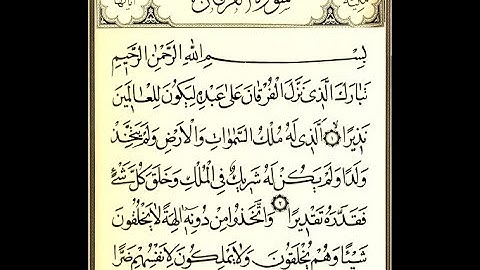 سورة الفرقان
بِسْمِ اللهِ الرَّحْمٰنِ الرَّحِيمِ
تَبَارَكَ الَّذِى نَزَّلَ الْفُرْقَانَ عَلٰى عَبْدِهٖ لِيَكُونَ لِلْعَالَمِينَ
نَذِيرًا ١ اَلَّذِى لَهُ مُلْكُ السَّمٰوَاتِ وَالْاَرْضِ وَلَمْ يَتَّخِذْ
وَلَدًا وَلَمْ يَكُنْ لَهُ شَرِيكٌ فِى الْمُلْكِ وَخَلَقَ كُلَّ شَىْءٍ
فَقَدَّرَهُ تَقْدِيرًا ٢ وَاتَّخَذُوا مِنْ دُونِهٖ اٰلِهَةً لَا يَخْلُقُونَ
شَيْئًا وَهُمْ يُخْلَقُونَ وَلَا يَمْلِكُونَ لِاَنْفُسِهِمْ ضَرًّا